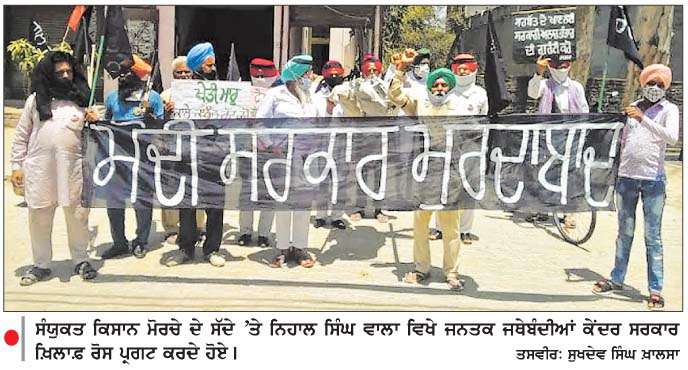 ਸਰਬੱਤ ਦੇ
ਦੀ ਗੁਰੰਟੀ ਕੀ
ਖੇਤੀ ਮਾਰੂ
ਮੋਦੀ ਸਰਕਾਰ ਮੁਰਦਾਬਾਦ
ਸੰਯੁਕਤ ਕਿਸਾਨ ਮੋਰਚੇ ਦੇ ਸੱਦੇ ’ਤੇ ਨਿਹਾਲ ਸਿੰਘ ਵਾਲਾ ਵਿਖੇ ਜਨਤਕ ਜਥੇਬੰਦੀਆਂ ਕੇਂਦਰ ਸਰਕਾਰ
ਖ਼ਿਲਾਫ਼ ਰੋਸ ਪ੍ਰਗਟ ਕਰਦੇ ਹੋਏ।
ਤਸਵੀਰ: ਸੁਖਦੇਵ ਸਿੰਘ ਖ਼ਾਲਸਾ